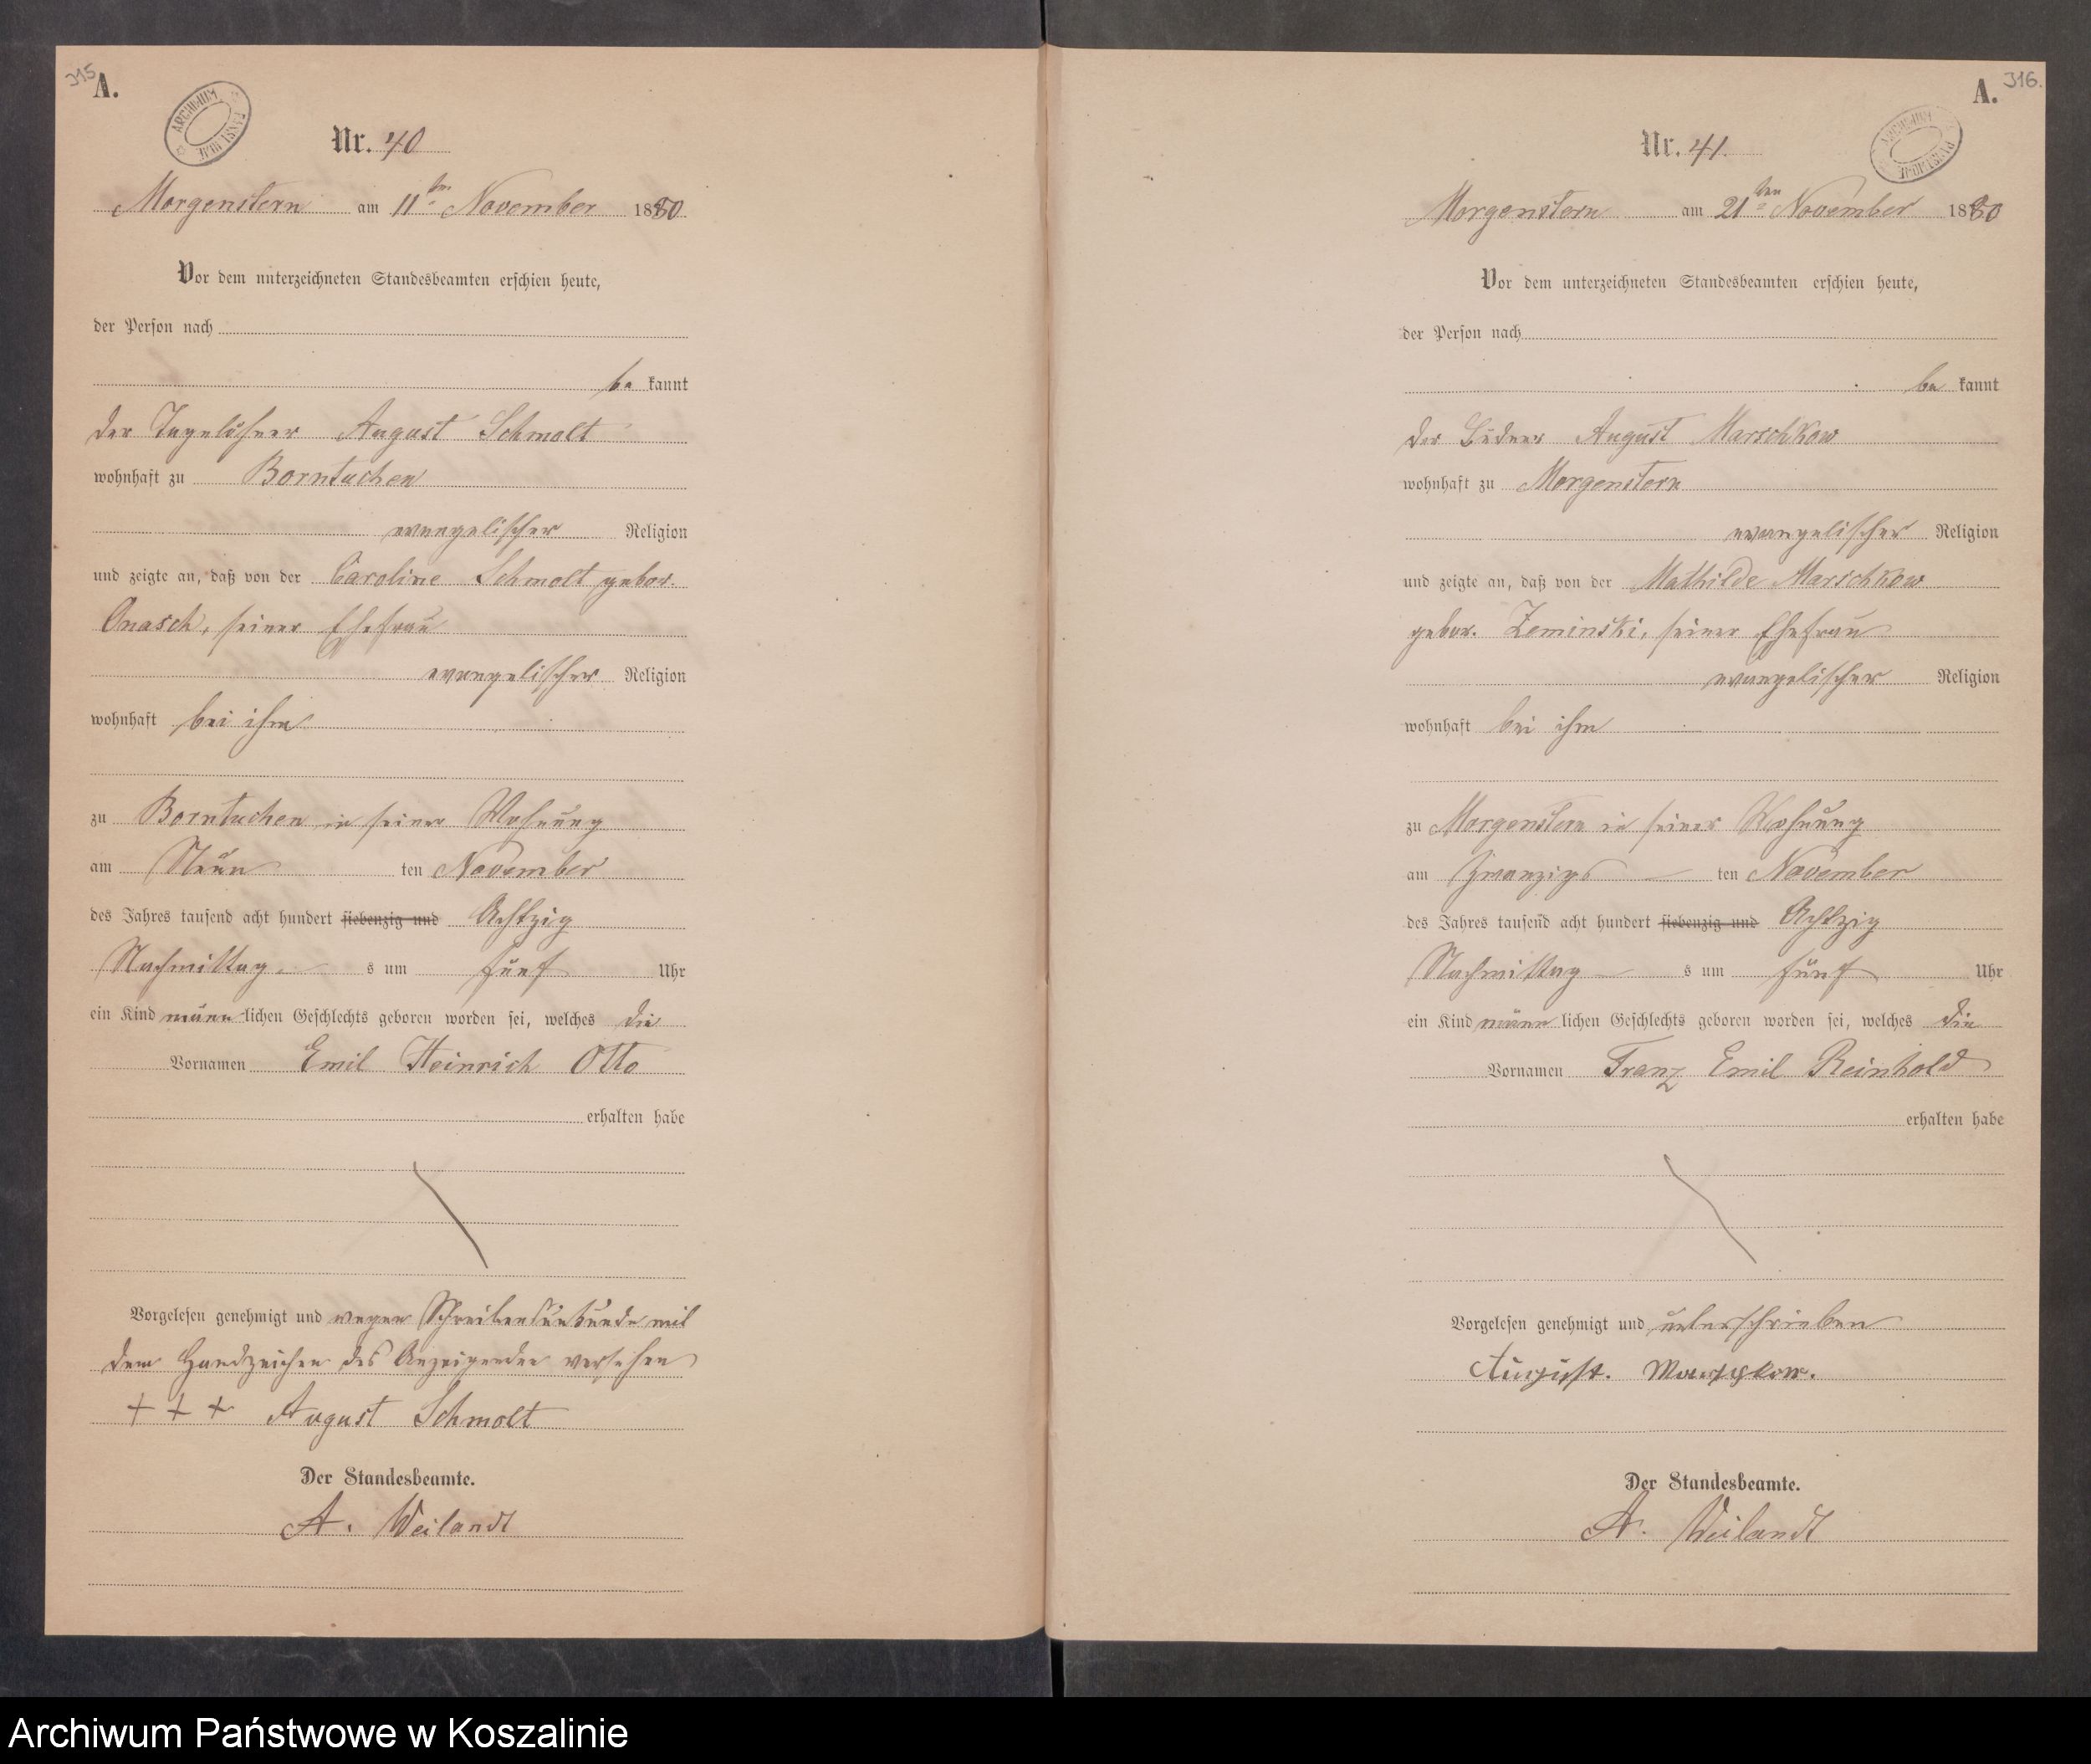 315
A.
ARCHIWUM PAŃSTWOWE
Nr. 40
Morgenstern am 11ten November 1880
Vor dem unterzeichneten Standesbeamten erschien heute,
der Person nach
be kannt
der Tagelöhner August Schmolt
wohnhaft zu Borntuchen
evangelischer Religion
und zeigte an, daß von der Caroline Schmolt gebor.
Onasch, seiner Ehefrau
evangelischer Religion
wohnhaft bei ihm
zu Borntuchen in seiner Wohnung
am Neun ten November
des Jahres tausend acht hundert siebenzig und Achtzig
Nachmittag s um fünf Uhr
ein Kind männlichen Geschlechts geboren worden sei, welches die
Vornamen Emil Heinrich Otto
erhalten habe
Vorgelesen genehmigt und wegen Schreibensunkunde mit
dem Handzeichen des Anzeigenden versehen
+ + + August Schmolt
Der Standesbeamte.
A. Weilandt
316.
A.
ARCHIWUM PAŃSTWOWE
Nr. 41.
Morgenstern am 21ten November 1880
Vor dem unterzeichneten Standesbeamten erschien heute,
der Person nach
be kannt
der Büdner August Marschkow
wohnhaft zu Morgenstern
evangelischer Religion
und zeigte an, daß von der Mathilde Marschkow
gebor. Zeminski, seiner Ehefrau
evangelischer Religion
wohnhaft bei ihm
zu Morgenstern in seiner Wohnung
am Zwanzigs ten November
des Jahres tausend acht hundert siebenzig und Achtzig
Nachmittag s um fünf Uhr
ein Kind männlichen Geschlechts geboren worden sei, welches die
Vornamen Franz Emil Reinhold
erhalten habe
Vorgelesen genehmigt und unterschrieben
August. Marschkow.
Der Standesbeamte.
A. Weilandt
Archiwum Państwowe w Koszalinie